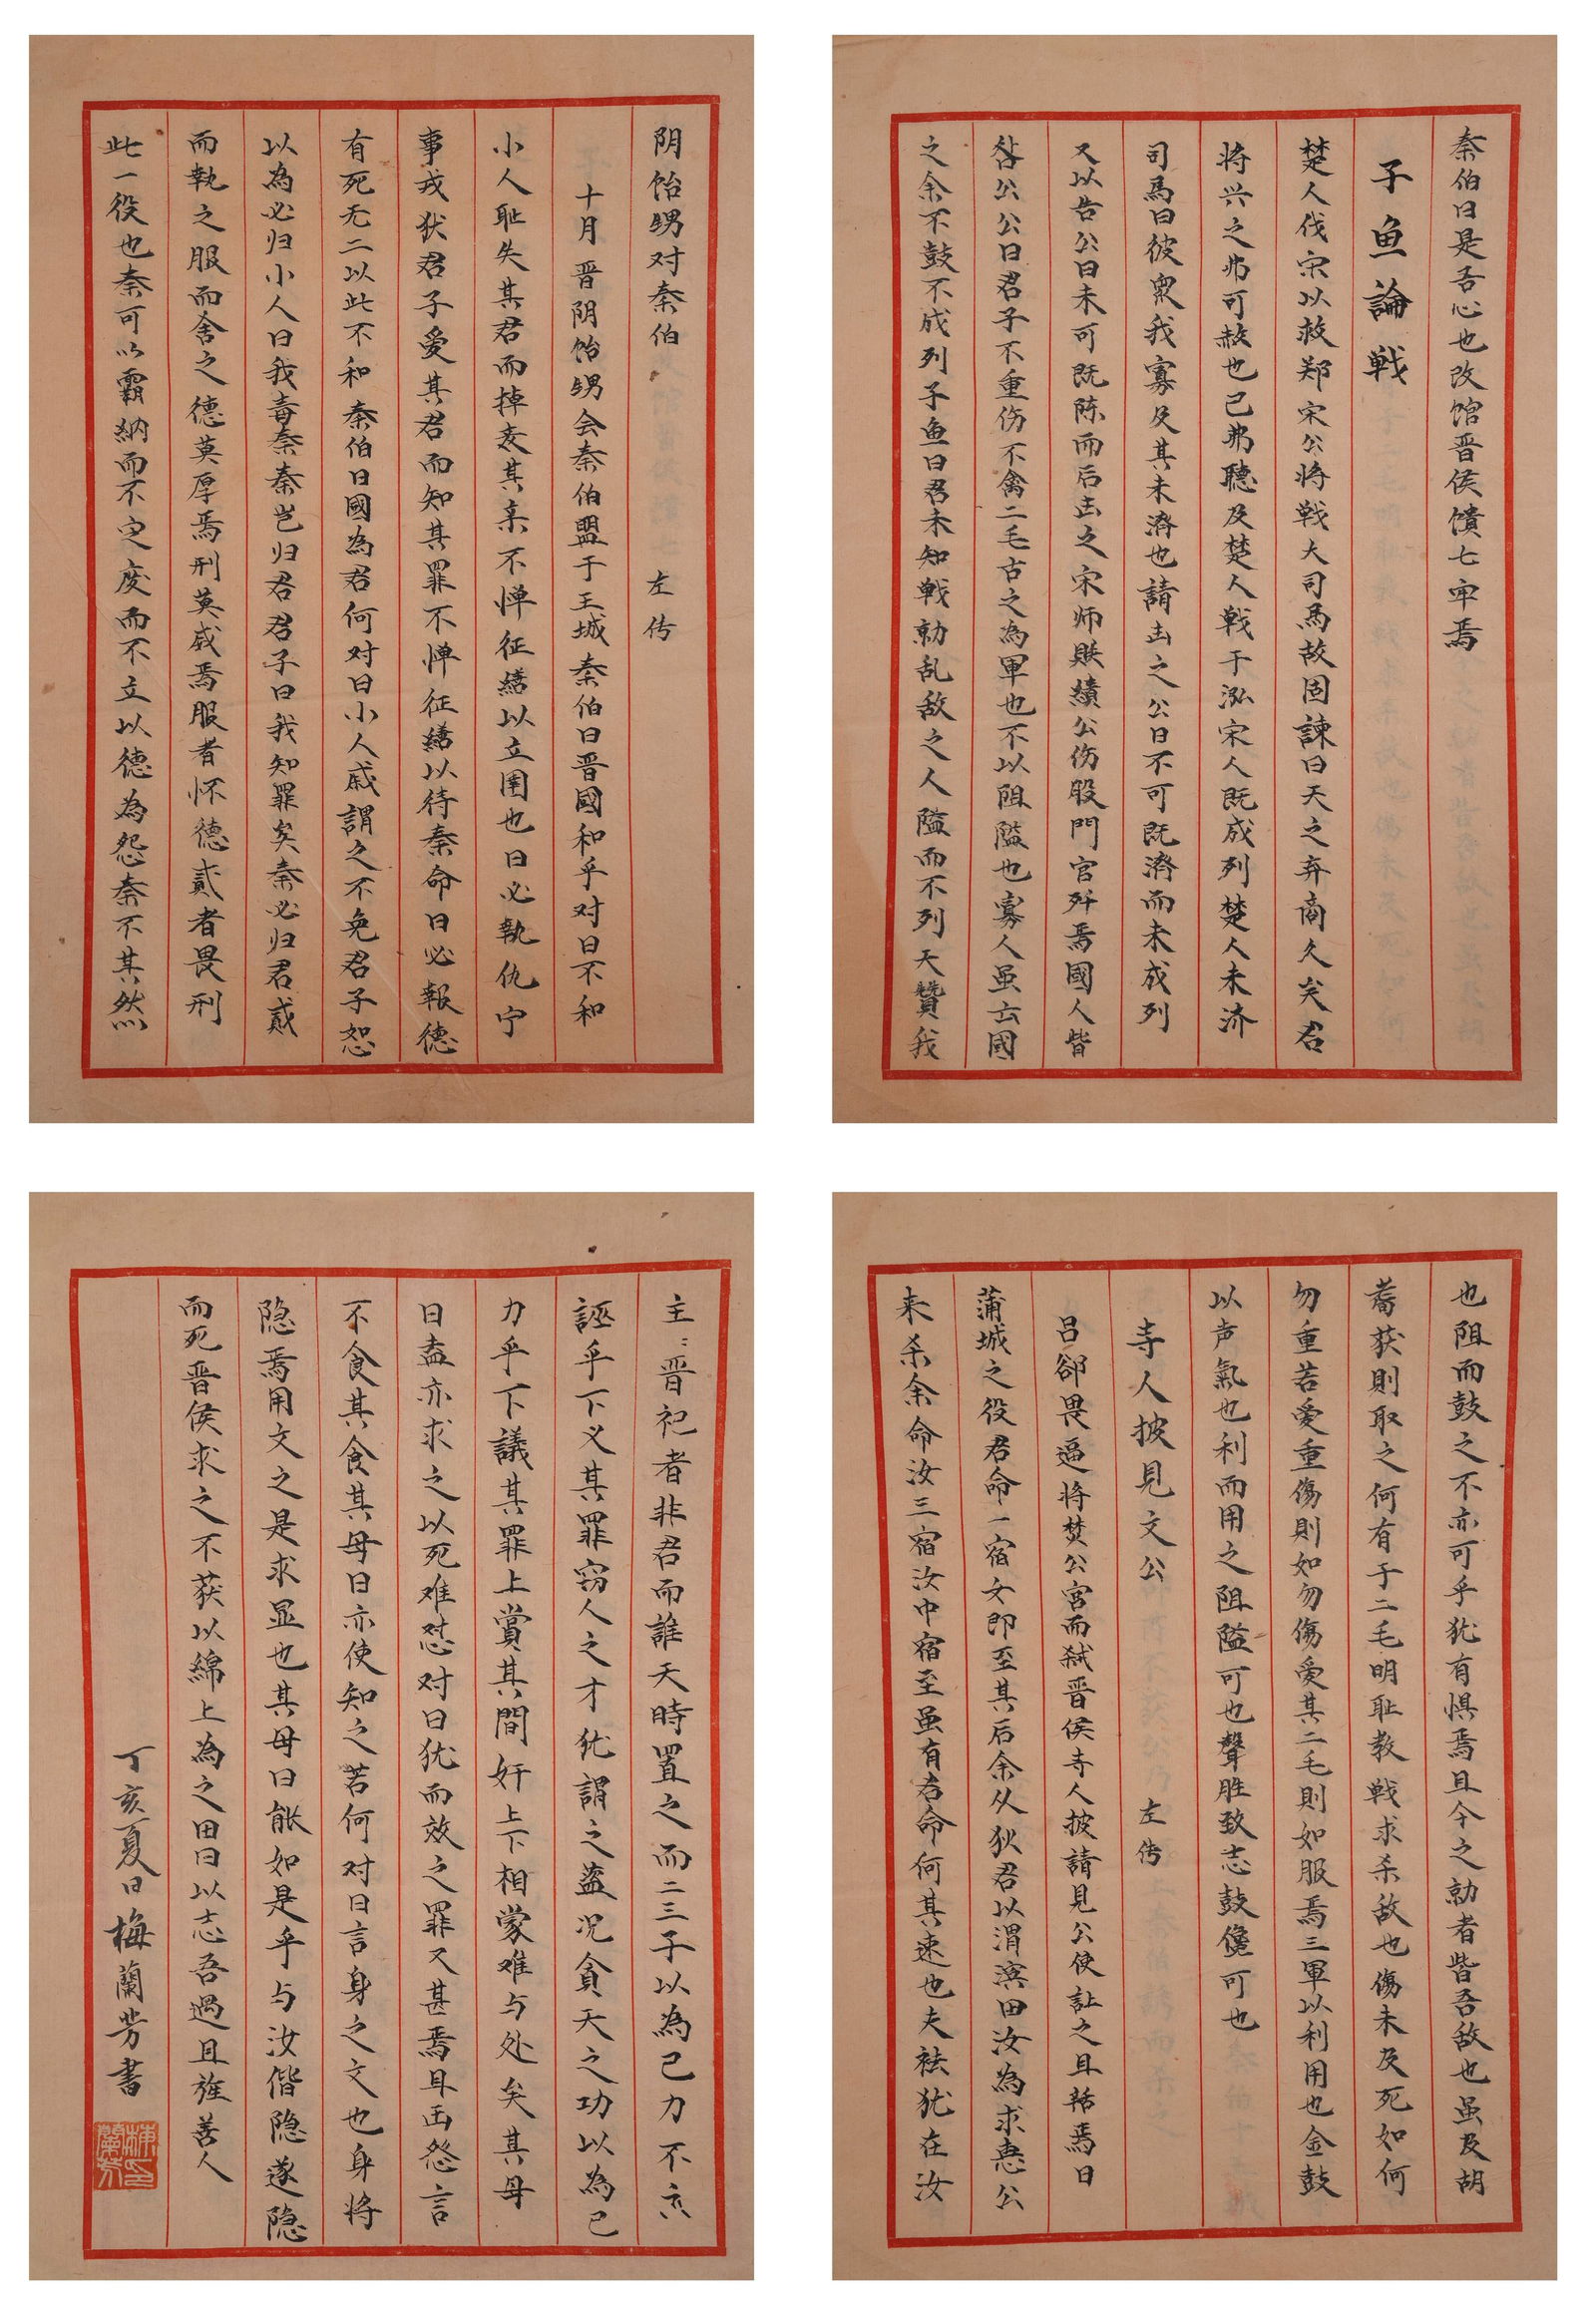 阴饴甥对秦伯 左传
十月晋阴饴甥会秦伯盟于王城秦伯曰晋國和乎对曰不和
小人耻失其君而掉丧其亲不惮征繕以立圉也曰必執仇宁
事戎狄君子爱其君而知其罪不惮征繕以待秦命曰必報德
有死无二以此不和秦伯曰國為君何对曰小人戚謂之不免君子恕
以為必归小人曰我毒秦秦岂归君君子曰我知罪矣秦必归君貳
而執之服而舍之德莫厚焉刑莫威焉服者怀德貳者畏刑
此一役也秦可以霸納而不定废而不立以德為怨秦不其然
秦伯曰是吾心也改馆晋侯馈七牢焉
子鱼論戦
楚人伐宋以救郑宋公将戦大司馬故固諫曰天之弃商久矣君
将兴之弗可赦也已弗聽及楚人戦于泓宋人既成列楚人未济
司馬曰彼衆我寡及其未濟也請击之公曰不可既濟而未成列
又以告公曰未可既陈而后击之宋师敗績公伤股門官歼焉國人皆
咎公公曰君子不重伤不禽二毛古之為軍也不以阻隘也寡人虽亡國
之余不鼓不成列子鱼曰君未知戦勍乱敌之人隘而不列天贊我
也阻而鼓之不亦可乎犹有惧焉且今之勍者皆吾敌也虽及胡
耇获則取之何有于二毛明耻教戦求杀敌也傷未及死如何
勿重若爱重傷則如勿傷爱其二毛則如服焉三軍以利用也金鼓
以声氣也利而用之阻隘可也聲胜致志鼓儳可也
寺人披見文公 左传
吕郤畏逼将焚公宮而弑晋侯寺人披請見公使讓之且辞焉曰
蒲城之役君命一宿女即至其后余从狄君以渭濱田汝為求惠公
来杀余命汝三宿汝中宿至虽有君命何其速也夫袪犹在汝
主晋祀者非君而誰天時置之而二三子以為己力不亦
誣乎下义其罪窃人之才犹謂之盗况貪天之功以為己
力乎下議其罪上賞其間奸上下相蒙难与处矣其母
曰盍亦求之以死难怼对曰犹而效之罪又甚焉且出怨言
不食其食其母曰亦使知之若何对曰言身之文也身将
隐焉用文之是求显也其母曰能如是乎与汝偕隐遂隐
而死晋侯求之不获以綿上為之田曰以志吾過且旌善人
丁亥夏日梅蘭芳書
梅蘭芳印